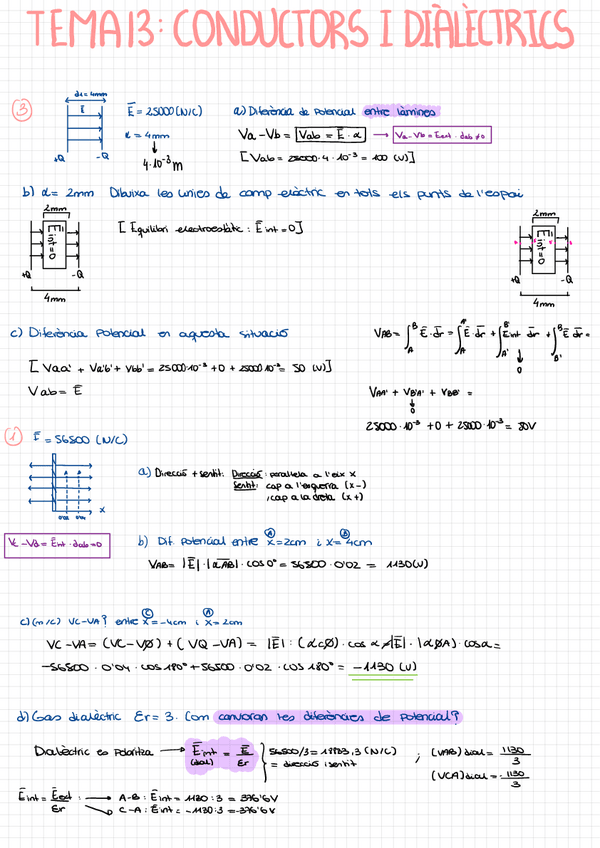 TEMA 13: CONDUCTORS I DIALÈCTRICS
3
d1 = 4mm
E
+Q -Q
E = 25000 (N/C)
d = 4mm
4·10⁻³ m
a) Diferència de Potencial entre làmines
Va-Vb = Vab = E · d → Va-Vb = Eext · dab ≠ 0
[Vab = 25000 · 4 · 10⁻³ = 100 (V)]
b) d = 2mm Dibuixa les línies de camp elèctric en tots els punts de l'espai
2mm
Eint = 0
+Q -Q
4mm
[Equilibri electroestàtic : Eint = 0]
2mm
Eint = 0
+Q -Q
4mm
c) Diferència Potencial en aquesta situació
[Vaa' + Va'b' + Vbb' = 25000·10⁻³ + 0 + 25000·10⁻³ = 50 (V)]
Vab = E
VAB = ∫ₐᴮ E · dr = ∫ₐᴬ' E · dr + ∫ₐ'ᴮ' Eint dr + ∫ᴮ'ᴮ E dr =
0
VAA' + VB'A' + VBB' =
0
25000·10⁻³ + 0 + 25000·10⁻³ = 50V
1
E = 56500 (N/C)
A B
0'02 0'04
x
a) Direcció + sentit: Direcció: paral·lela a l'eix x
Sentit: cap a l'esquerra (x-)
, cap a la dreta (x+)
Vc - Vd = Eint · dab = 0
b) Dif. potencial entre x = 2cm i x = 4cm
A B
VAB = |E| · |dAB| · cos 0° = 56500 · 0'02 = 1130 (V)
c) (m/c) VC-VA? entre x = -4cm i x = 2cm
C A
VC - VA = (VC-V0) + (VQ - VA) = |E| : (dc0) · cos α + |E| · |d0A| · cos α =
-56500 · 0'04 · cos 180° + 56500 · 0'02 · cos 180° = -1130 (V)
d) Gas dialèctric Er = 3. Com canviaran les diferències de potencial?
Dialèctric es Polaritza → Eint (dial) = E / Er
56500/3 = 18833,3 (N/C)
= direcció i sentit
; (VAB) dial = 1130 / 3
(VCA) dial = -1130 / 3
Eint = Eext / Er :
A-B : Eint = 1130 : 3 = 376'6V
C-A : Eint = -1130 : 3 = -376'6V